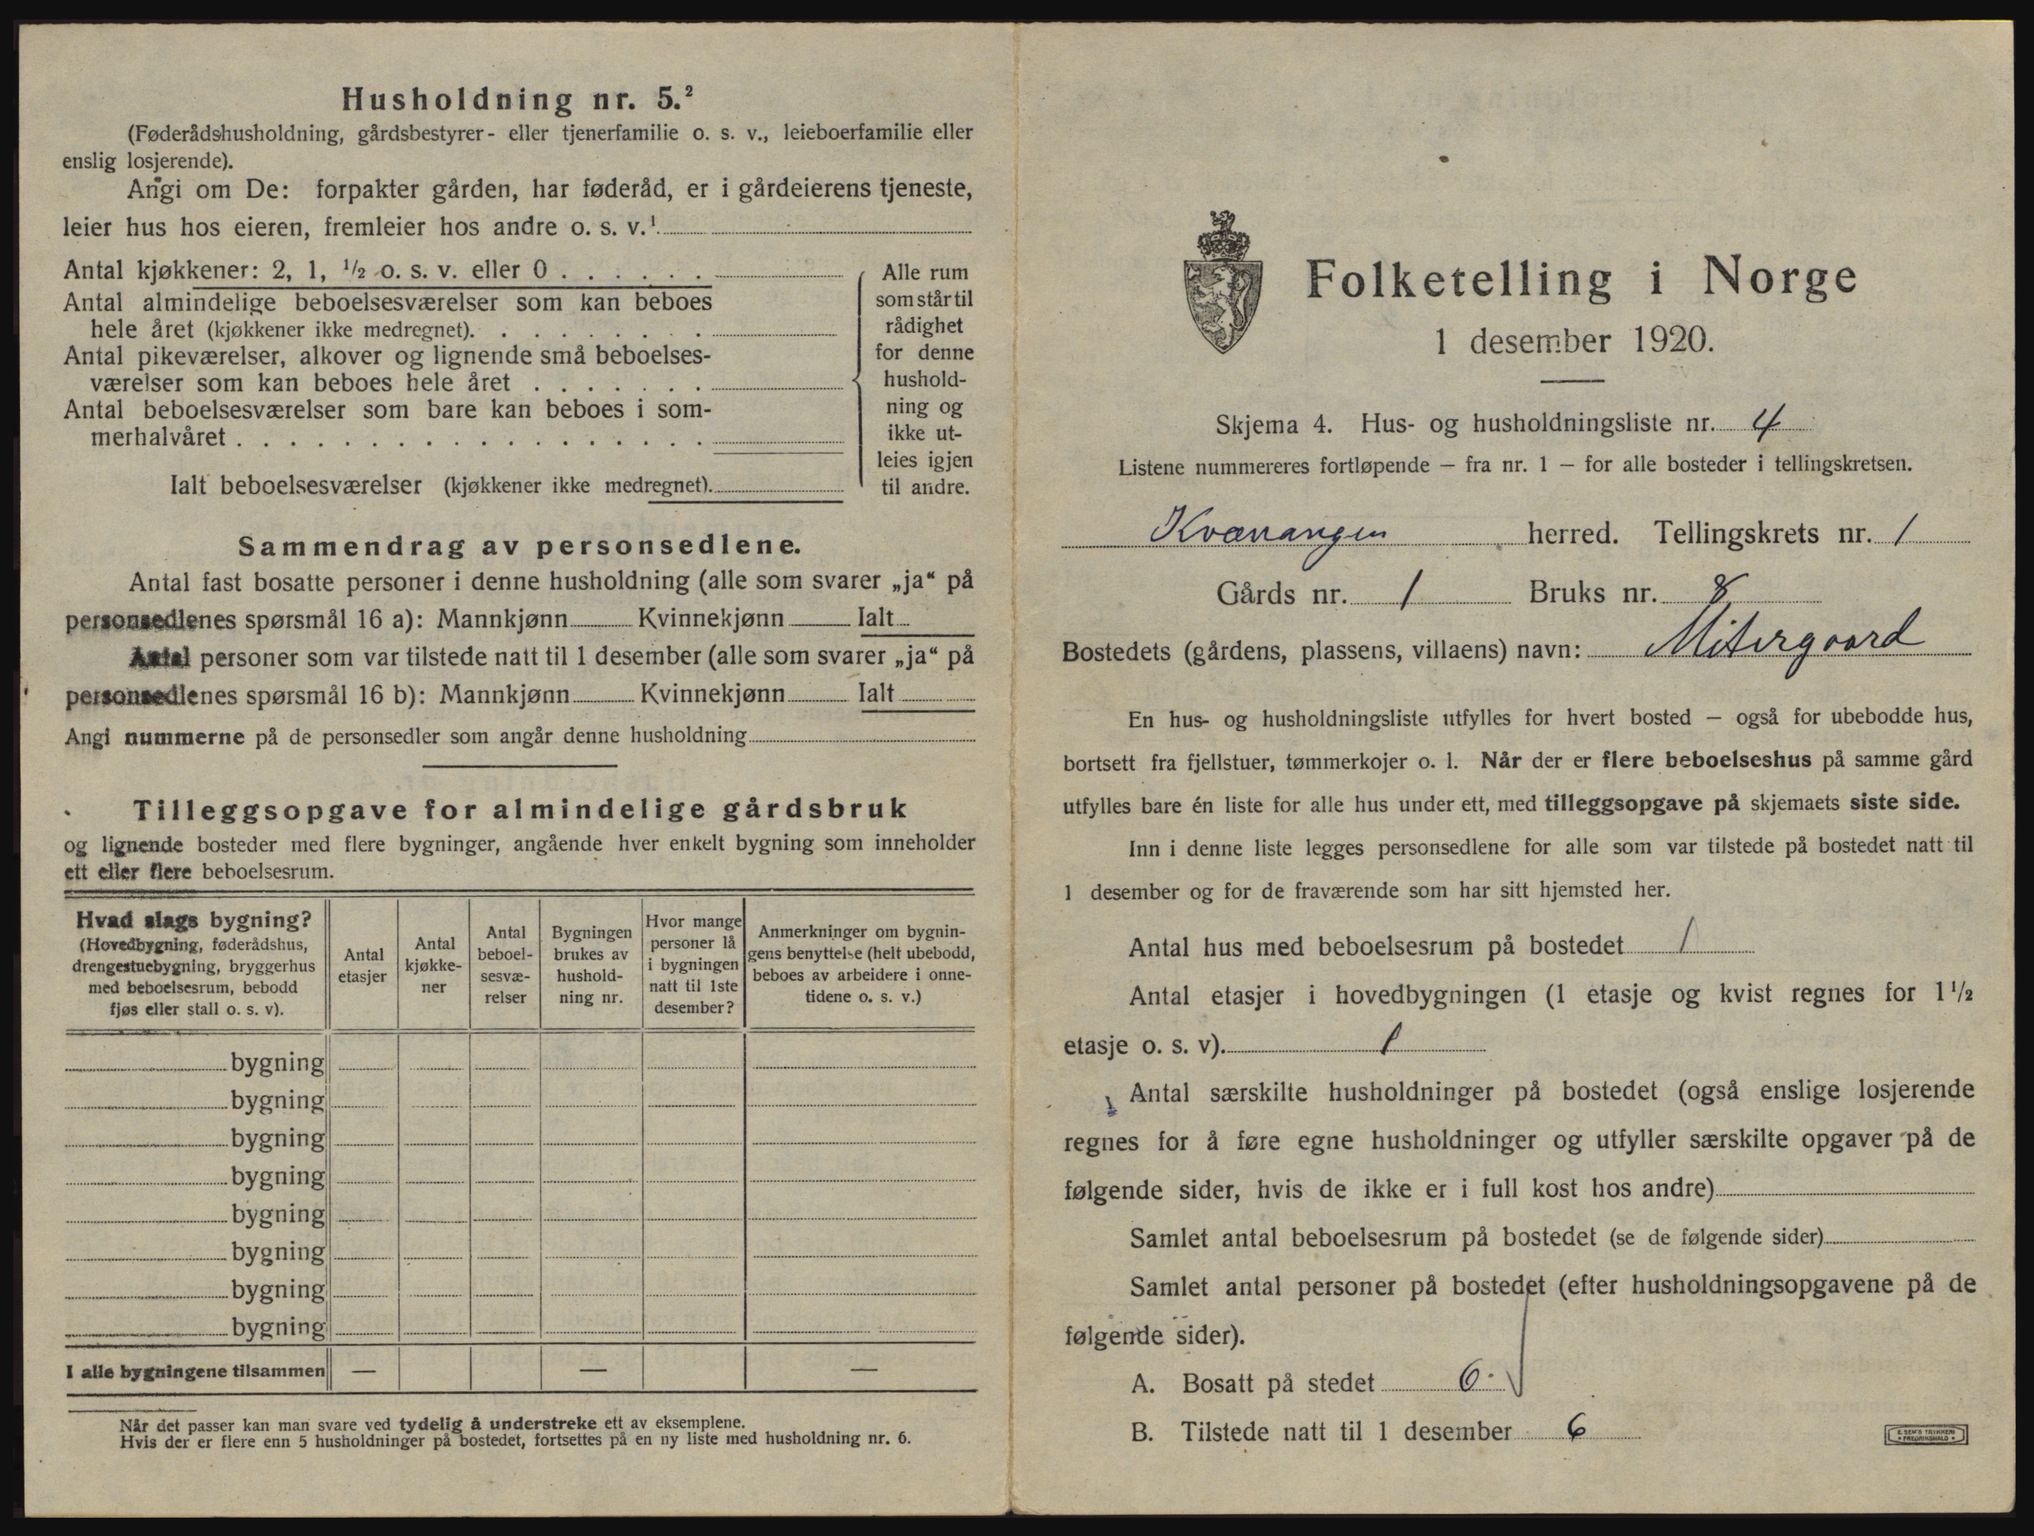 Husholdning nr. 5.²
(Føderådshusholdning, gårdsbestyrer- eller tjenerfamilie o. s. v., leieboerfamilie eller
enslig losjerende).
Angi om De: forpakter gården, har føderåd, er i gårdeierens tjeneste,
leier hus hos eieren, fremleier hos andre o. s. v.¹
Antal kjøkkener: 2, 1, ½ o. s. v. eller 0 . . . . . .
Antal almindelige beboelsesværelser som kan beboes
hele året (kjøkkener ikke medregnet). . . . . . . . .
Antal pikeværelser, alkover og lignende små beboelses-
værelser som kan beboes hele året . . . . . . .
Antal beboelsesværelser som bare kan beboes i som-
merhalvåret . . . . . . . . . . . . . . . . . .
Ialt beboelsesværelser (kjøkkener ikke medregnet).
Alle rum
som står til
rådighet
for denne
hushold-
ning og
ikke ut-
leies igjen
til andre.
Sammendrag av personsedlene.
Antal fast bosatte personer i denne husholdning (alle som svarer „ja“ på
personsedlenes spørsmål 16 a): Mannkjønn Kvinnekjønn Ialt
Antal personer som var tilstede natt til 1 desember (alle som svarer „ja“ på
personsedlenes spørsmål 16 b): Mannkjønn Kvinnekjønn Ialt
Angi nummerne på de personsedler som angår denne husholdning
Tilleggsopgave for almindelige gårdsbruk
og lignende bosteder med flere bygninger, angående hver enkelt bygning som inneholder
ett eller flere beboelsesrum.
Hvad slags bygning?
(Hovedbygning, føderådshus,
drengestuebygning, bryggerhus
med beboelsesrum, bebodd
fjøs eller stall o. s. v).
Antal
etasjer
Antal
kjøkke-
ner
Antal
beboel-
sesvæ-
relser
Bygningen
brukes av
hushold-
ning nr.
Hvor mange
personer lå
i bygningen
natt til 1ste
desember?
Anmerkninger om bygnin-
gens benyttelse (helt ubebodd,
beboes av arbeidere i onne-
tidene o. s. v.)
bygning
bygning
bygning
bygning
bygning
bygning
bygning
bygning
I alle bygningene tilsammen — — —
Når det passer kan man svare ved tydelig å understreke ett av eksemplene.
Hvis der er flere enn 5 husholdninger på bostedet, fortsettes på en ny liste med husholdning nr. 6.
Folketelling i Norge
1 desember 1920.
Skjema 4. Hus- og husholdningsliste nr. 4
Listene nummereres fortløpende – fra nr. 1 – for alle bosteder i tellingskretsen.
Kvænangen herred. Tellingskrets nr. 1
Gårds nr. 1 Bruks nr. 8
Bostedets (gårdens, plassens, villaens) navn: Mitergaard
En hus- og husholdningsliste utfylles for hvert bosted – også for ubebodde hus,
bortsett fra fjellstuer, tømmerkojer o. l. Når der er flere beboelseshus på samme gård
utfylles bare én liste for alle hus under ett, med tilleggsopgave på skjemaets siste side.
Inn i denne liste legges personsedlene for alle som var tilstede på bostedet natt til
1 desember og for de fraværende som har sitt hjemsted her.
Antal hus med beboelsesrum på bostedet 1
Antal etasjer i hovedbygningen (1 etasje og kvist regnes for 1½
etasje o. s. v). 1
Antal særskilte husholdninger på bostedet (også enslige losjerende
regnes for å føre egne husholdninger og utfyller særskilte opgaver på de
følgende sider, hvis de ikke er i full kost hos andre)
Samlet antal beboelsesrum på bostedet (se de følgende sider)
Samlet antal personer på bostedet (efter husholdningsopgavene på de
følgende sider).
A. Bosatt på stedet 6
B. Tilstede natt til 1 desember 6
E. SEM'S TRYKKERI
FREDRIKSHALD